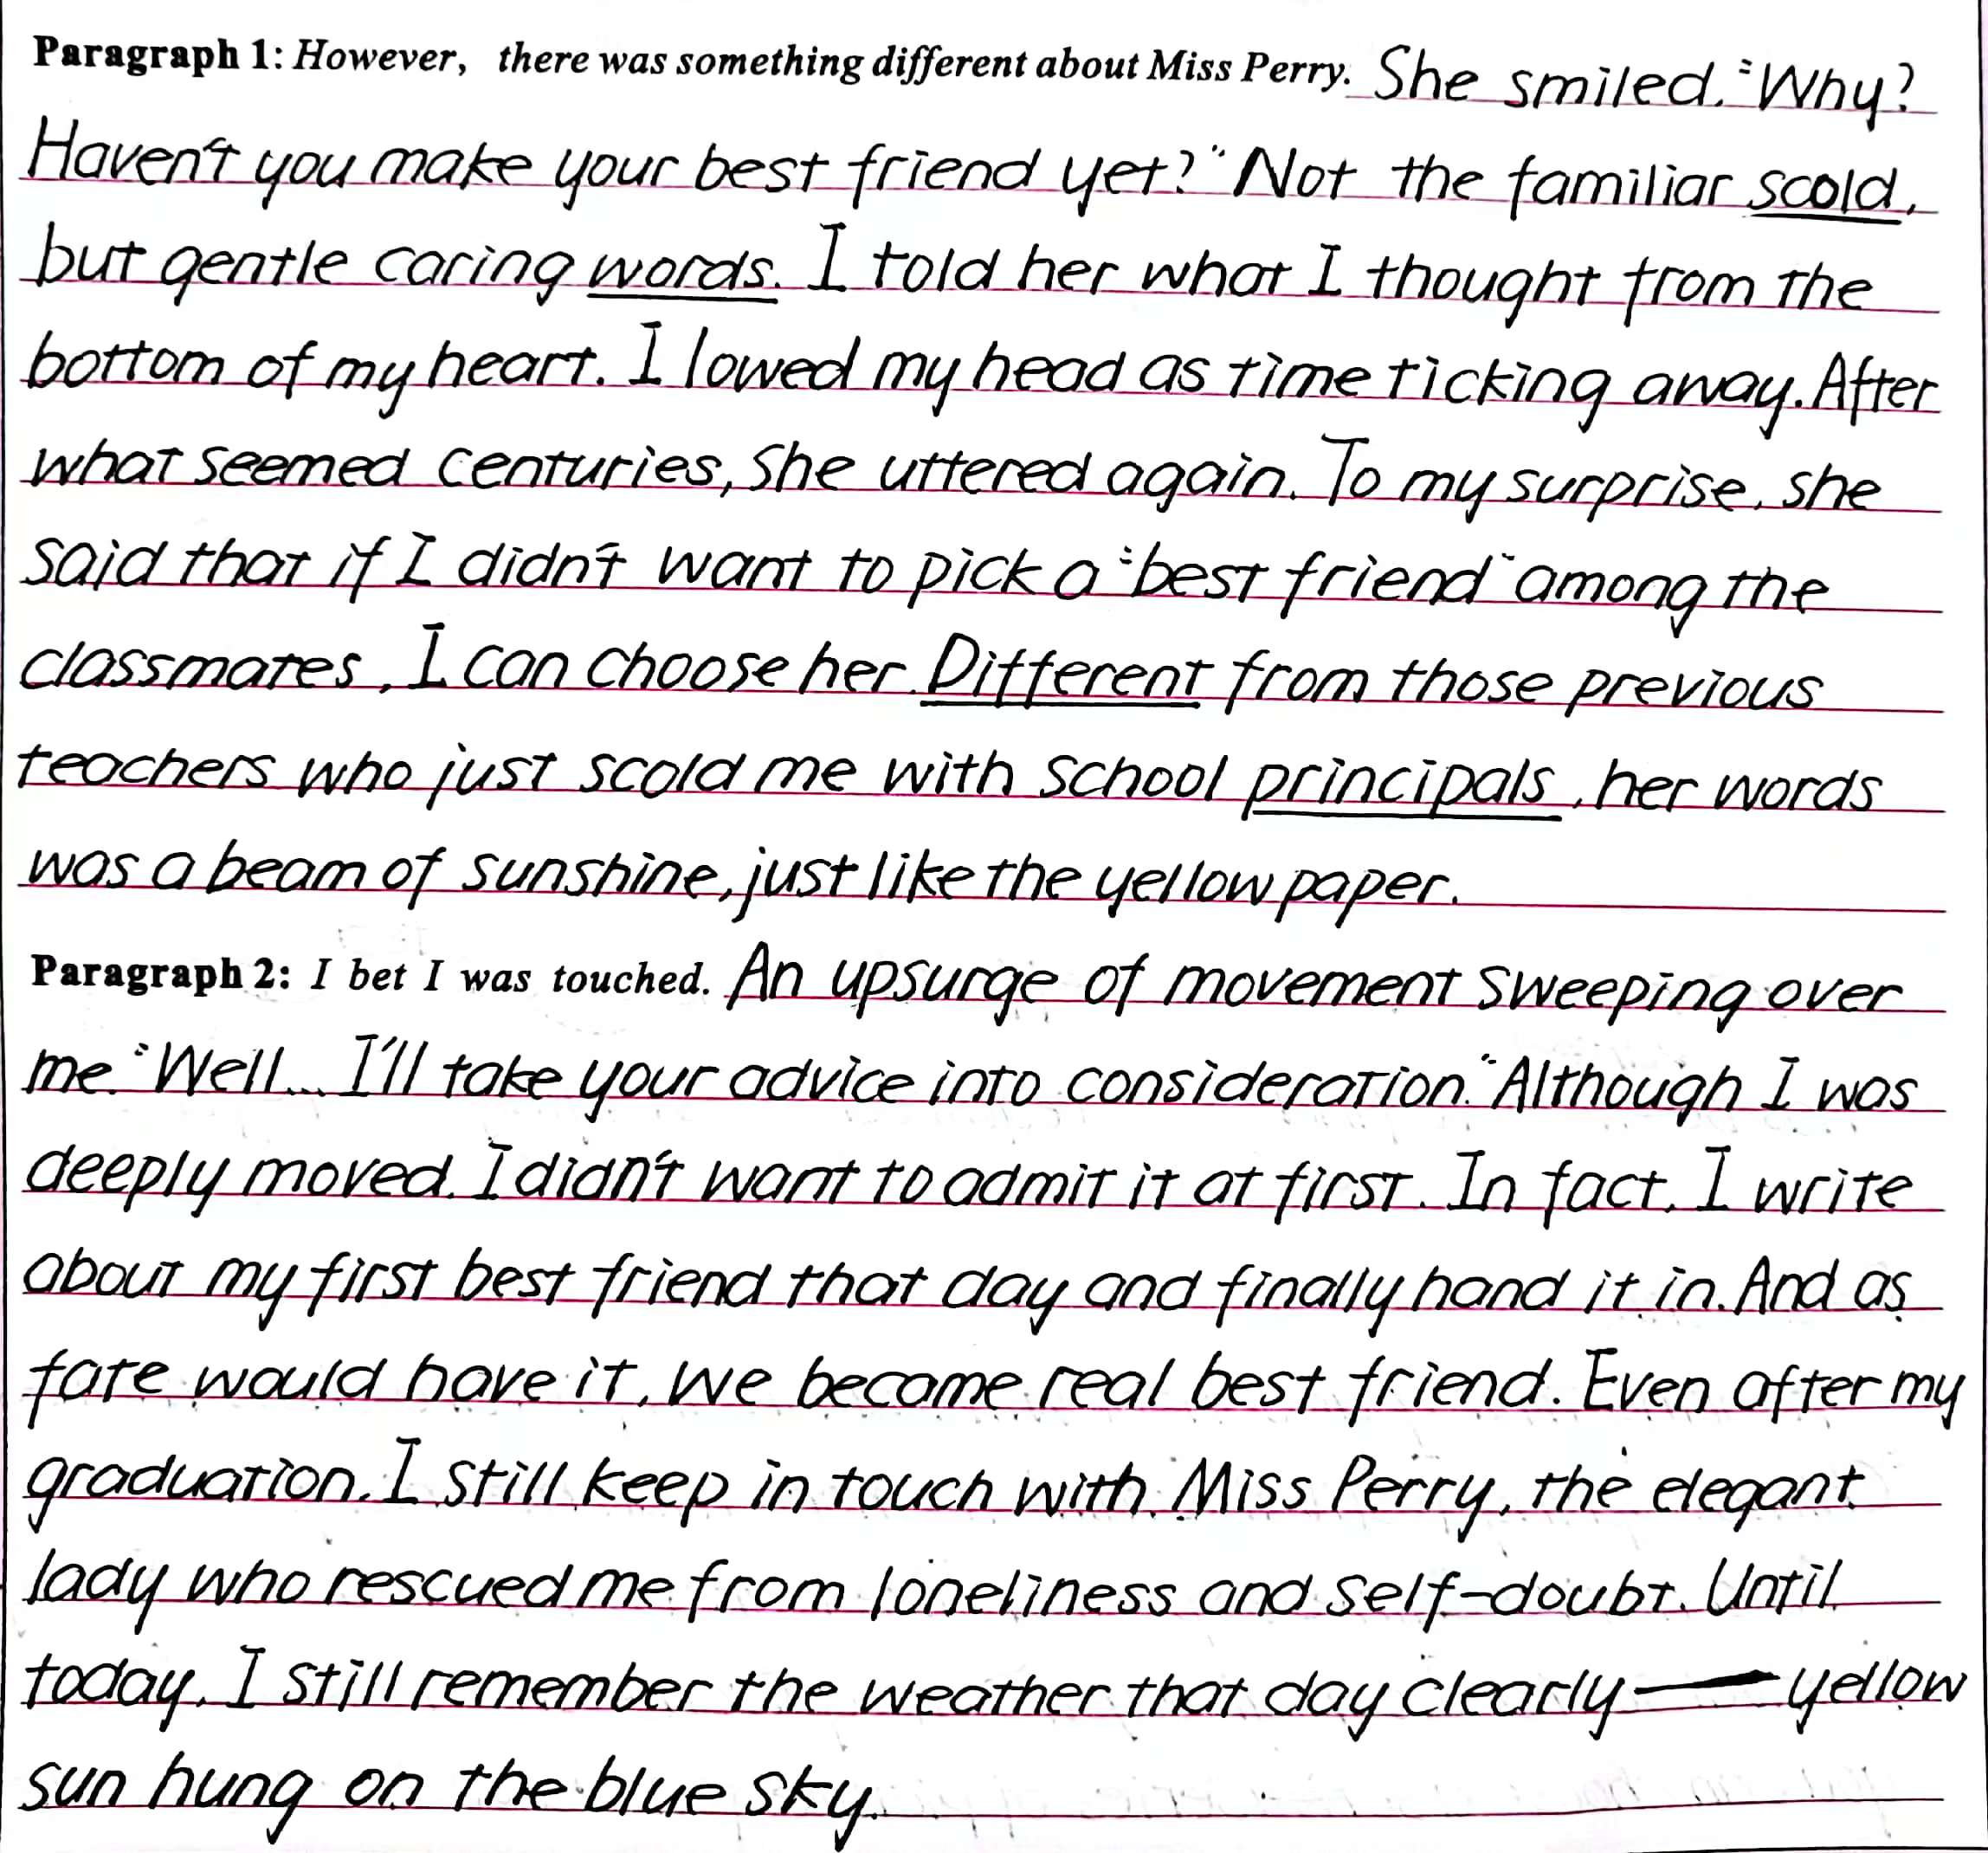 Paragraph 1: However, there was something different about Miss Perry. She smiled. "Why?
Haven't you make your best friend yet?" Not the familiar scold,
but gentle caring words. I told her what I thought from the
bottom of my heart. I lowed my head as time ticking away. After
what seemed centuries, she uttered again. To my surprise, she
said that if I didn't want to pick a "best friend" among the
classmates, I can choose her. Different from those previous
teachers who just scold me with school principals, her words
was a beam of sunshine, just like the yellow paper.
Paragraph 2: I bet I was touched. An upsurge of movement sweeping over
me. "Well... I'll take your advice into consideration." Although I was
deeply moved, I didn't want to admit it at first. In fact, I write
about my first best friend that day and finally hand it in. And as
fate would have it, we became real best friend. Even after my
graduation, I still keep in touch with Miss Perry, the elegant
lady who rescued me from loneliness and self-doubt. Until
today, I still remember the weather that day clearly — yellow
sun hung on the blue sky.